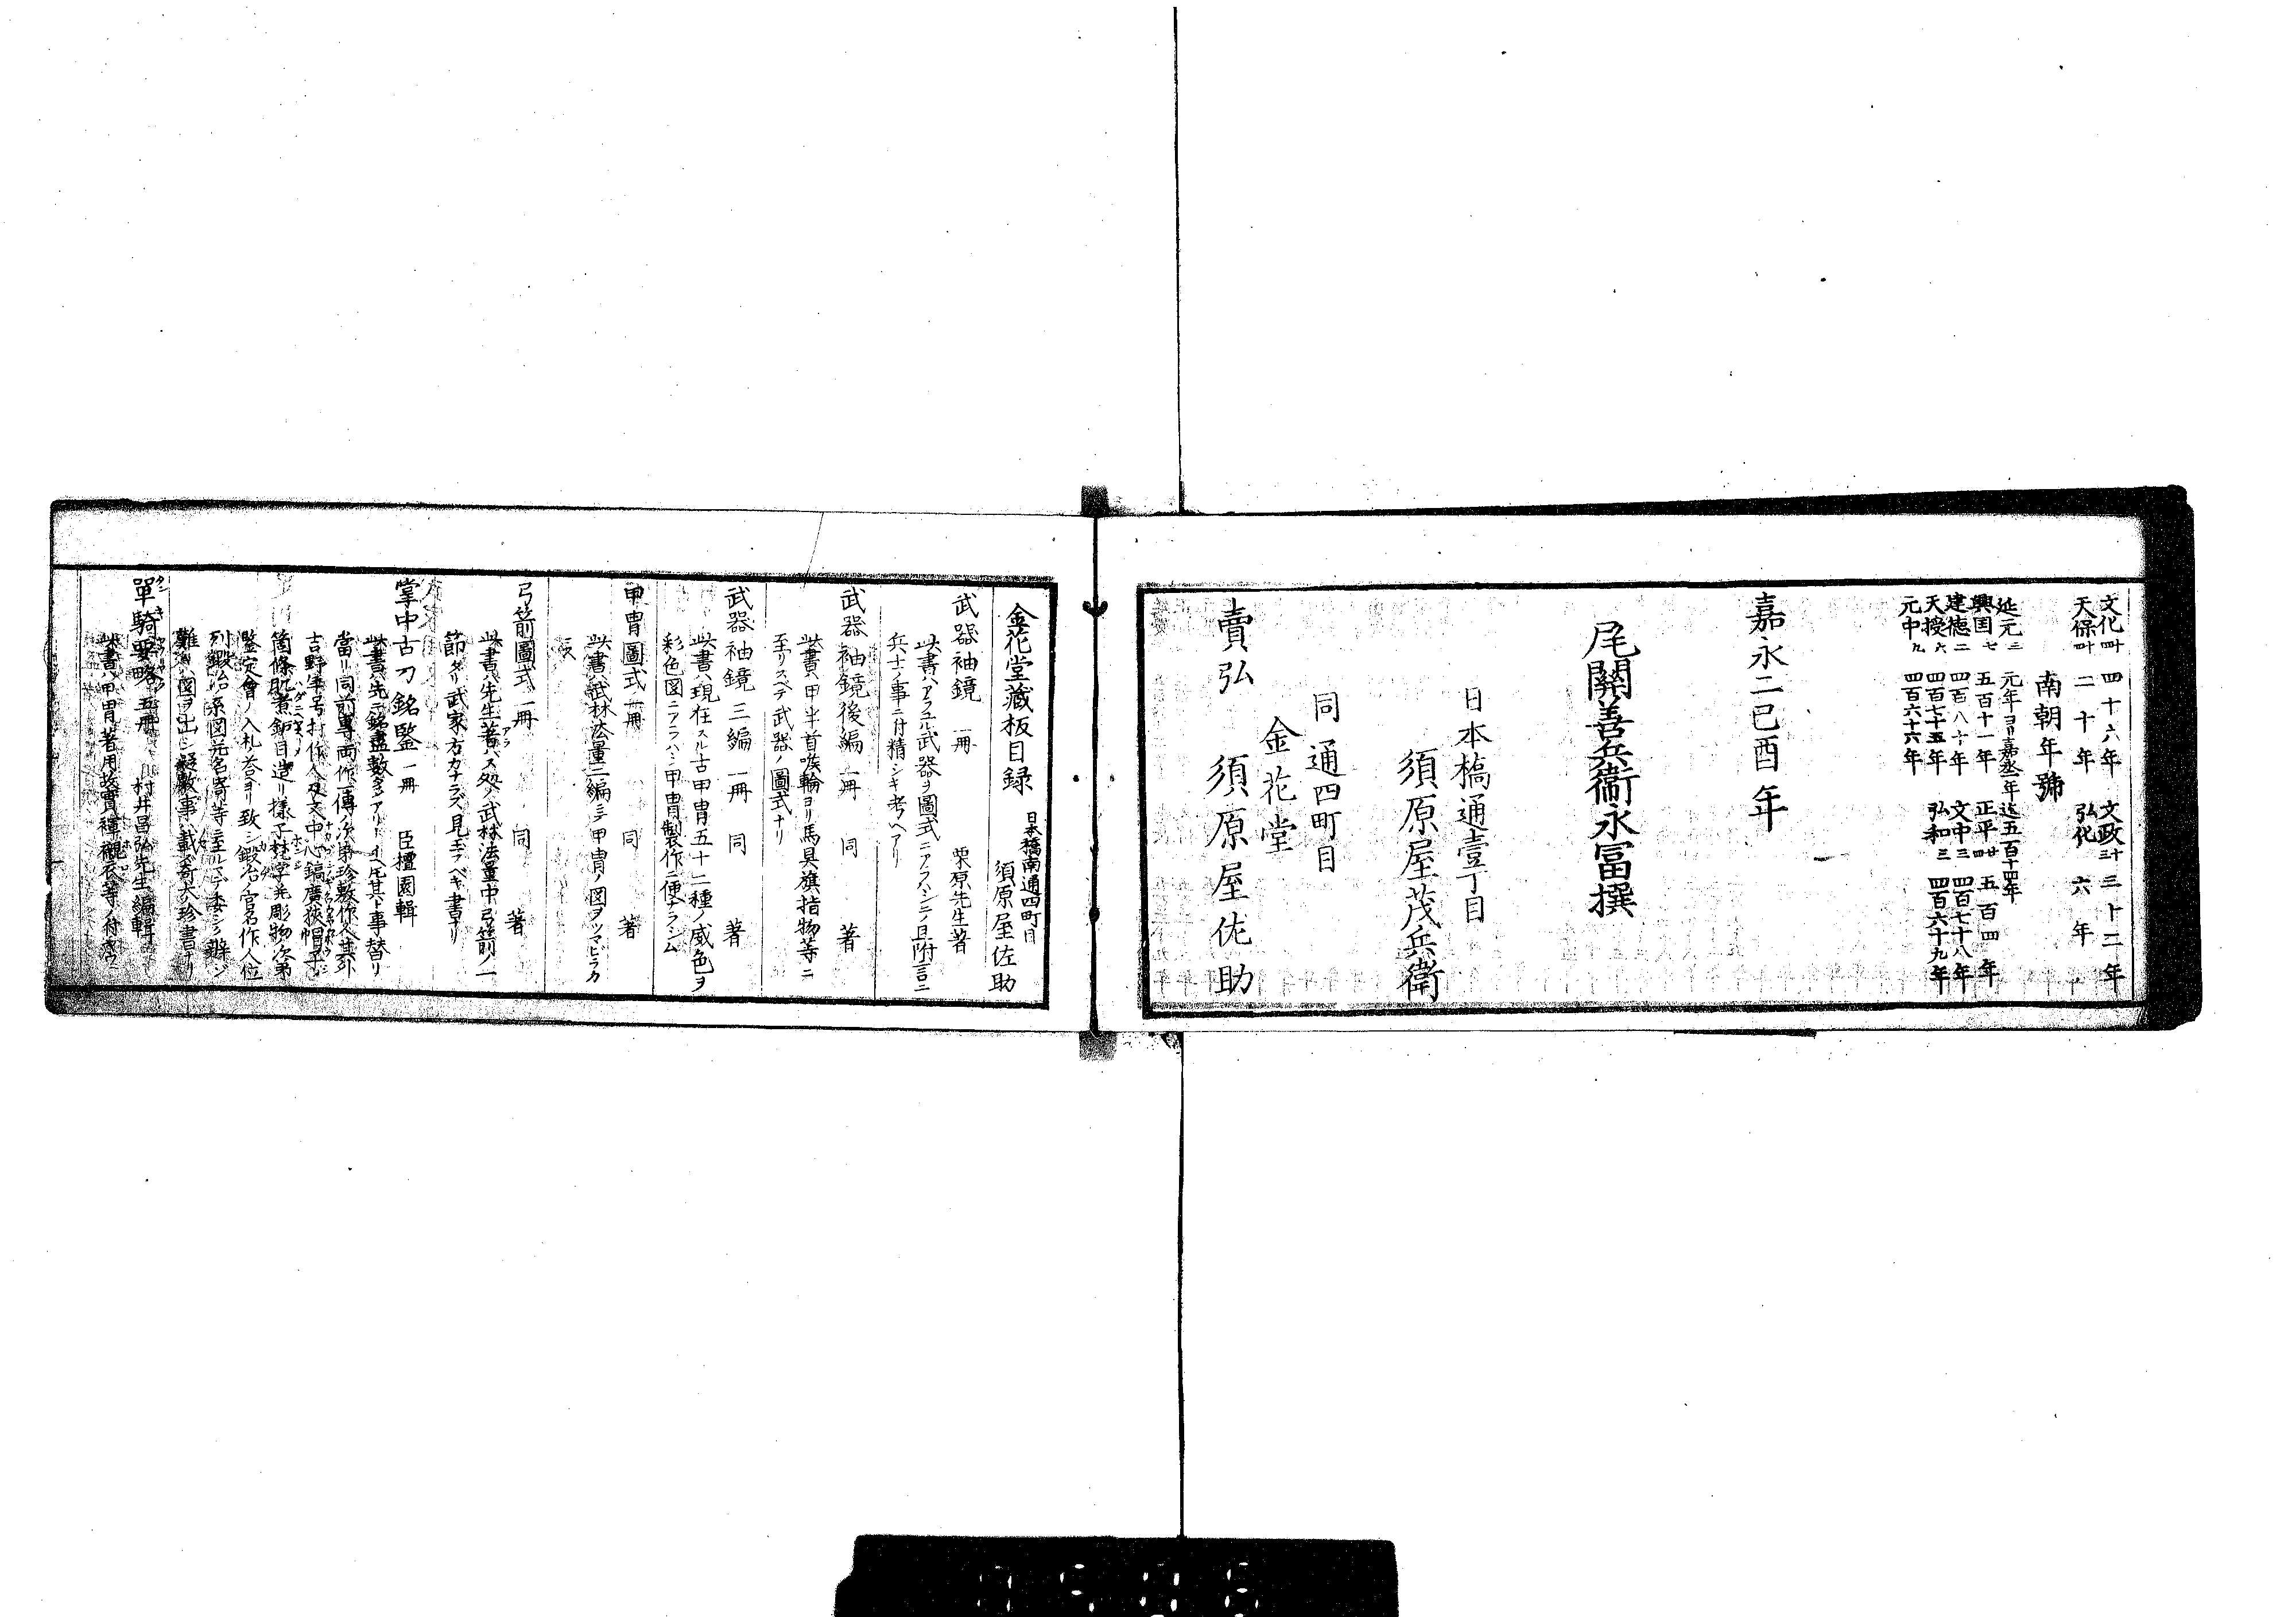 文化四十 四十六年 文政三十 三十二年
天保四十 二十年 弘化 六年
南朝年號
延元三 元年ヨリ嘉永二年迄五百十四年
興国七 五百十一年 正平廿四 五百四年
建徳二 四百八十年 文中三 四百七十八年
天授六 四百七十五年 弘和三 四百六十九年
元中九 四百六十六年
嘉永二己酉年
尾關善兵衞永冨撰
日本橋通壹丁目
須原屋茂兵衛
同通四町目
金花堂
賣弘 須原屋佐助
金花堂藏板目録 日本橋南通四町目
須原屋佐助
武器袖鏡 一冊 栗原先生著
此書ハアラユル武器ヲ圖式ニアラハシニノ且附言ニ
兵士ノ事ニ付精シキ考ヘアリ
武器袖鏡後編 一冊 同 著
此書ハ甲半首喉輪ヨリ馬具旗指物等ニ
至リスベテ武器ノ圖式ナリ
武器袖鏡三編 一冊 同 著
此書ハ現在スル古甲冑五十二種ノ威色ヲ
彩色図ニアラハシ甲冑製作ニ便ナラシム
甲冑圖式 一冊 同 著
此書ハ武林法量二編ニシテ甲冑ノ図ヲツマビラカ
弓箭圖式 一冊 同 著
此書ハ先生著ハス処ノ武林法量中弓箭ノ一
節ナリ武家方カナラズ見玉フベキ書ナリ
掌中古刀銘鑒 一冊 臣櫃園輯
此書ハ先ニ銘盡數多アリトイヘ𪜈其ト事替リ
當リ同前專両作傳ノ次第珍敷作人其外
吉野年号打作人及文中心鎬廣狹帽子
箇條肌煮鈩目造リ樣子梵字并彫物次第
鑒定會ノ入札答ヨリ致シ鍛冶ノ官名作人位
列鍛冶系図并名寄等ニ至ルマデ委シク辨ジ
難キハ図ヲ出シ疑敷事ハ載ズ奇大ノ珍書ナリ
單騎要略 五冊 村井昌弘先生編輯
此書ハ甲冑著用故實褌襯衣等ノ付齊ヲ